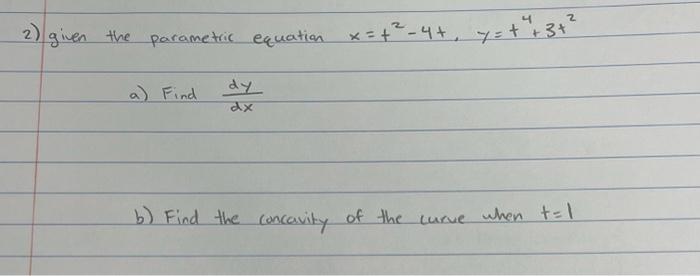 2) given the parametric equation x = t² - 4t, y = t⁴ + 3t²
a) Find dy/dx
b) Find the concavity of the curve when t=1